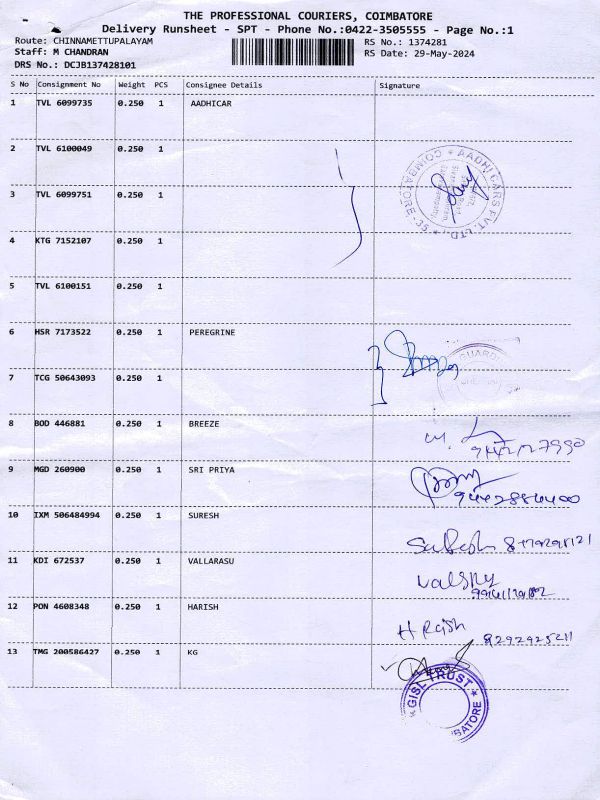 THE PROFESSIONAL COURIERS, COIMBATORE
Delivery Runsheet - SPT - Phone No.:0422-3505555 - Page No.:1
Route: CHINNAMETTUPALAYAM RS No.: 1374281
Staff: M CHANDRAN RS Date: 29-May-2024
DRS No.: DCJB137428101
S No Consignment No Weight PCS Consignee Details Signature
1 TVL 6099735 0.250 1 AADHICAR
2 TVL 6100049 0.250 1
AADHI CARS PVT. LTD. COIMBATORE-35
3 TVL 6099751 0.250 1
4 KTG 7152107 0.250 1
5 TVL 6100151 0.250 1
6 HSR 7173522 0.250 1 PEREGRINE
GUARDI
7 TCG 50643093 0.250 1
8 BOD 446881 0.250 1 BREEZE
9 MGD 260900 0.250 1 SRI PRIYA
10 IXM 506484994 0.250 1 SURESH
11 KDI 672537 0.250 1 VALLARASU
12 PON 4608348 0.250 1 HARISH
8292925211
13 TMG 200586427 0.250 1 KG
GISL TRUST